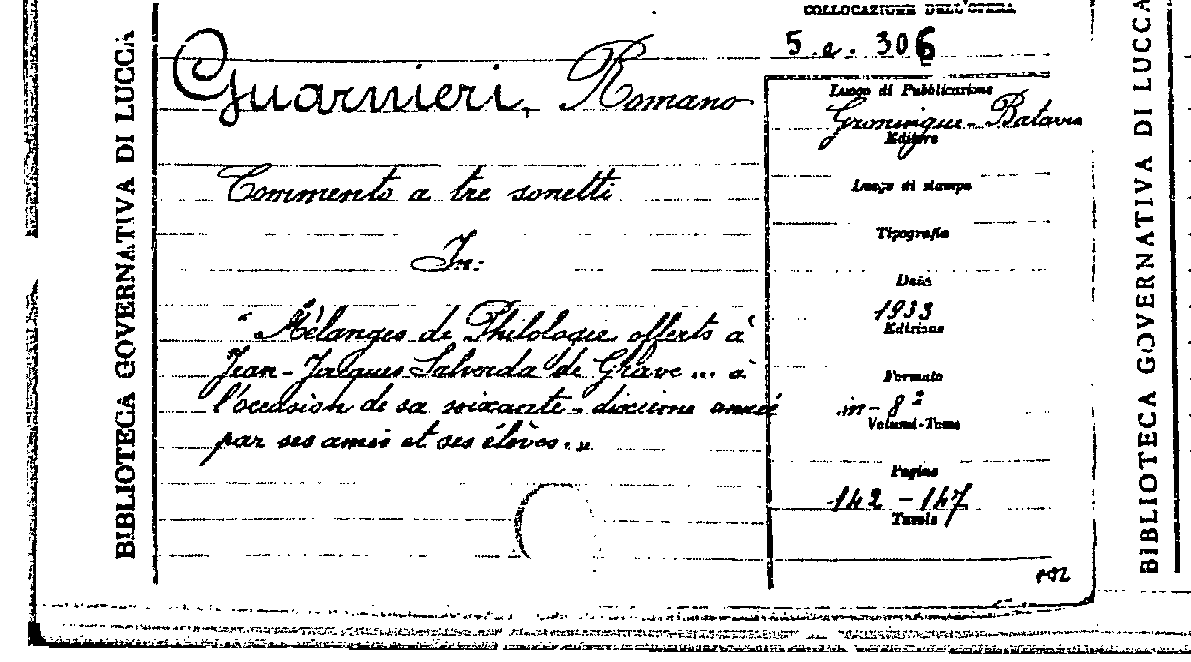 BIBLIOTECA GOVERNATIVA DI LUCCA
COLLOCAZIONE DELL'OPERA
5. e. 306
Guarnieri, Romano
Commento a tre sonetti
In:
"Mélanges de Philologie offerts à
Jean-Jacques Salverda de Grave ... à
l'occasion de sa soixante-dixième année
par ses amis et ses élèves."
Luogo di Pubblicazione
Groningue - Batavia
Editore
Luogo di stampa
Tipografia
Data
1933
Edizione
Formato
in-8º
Volumi-Tomo
Pagine
142 - 147
Tavole
BIBLIOTECA GOVERNATIVA DI LUCCA